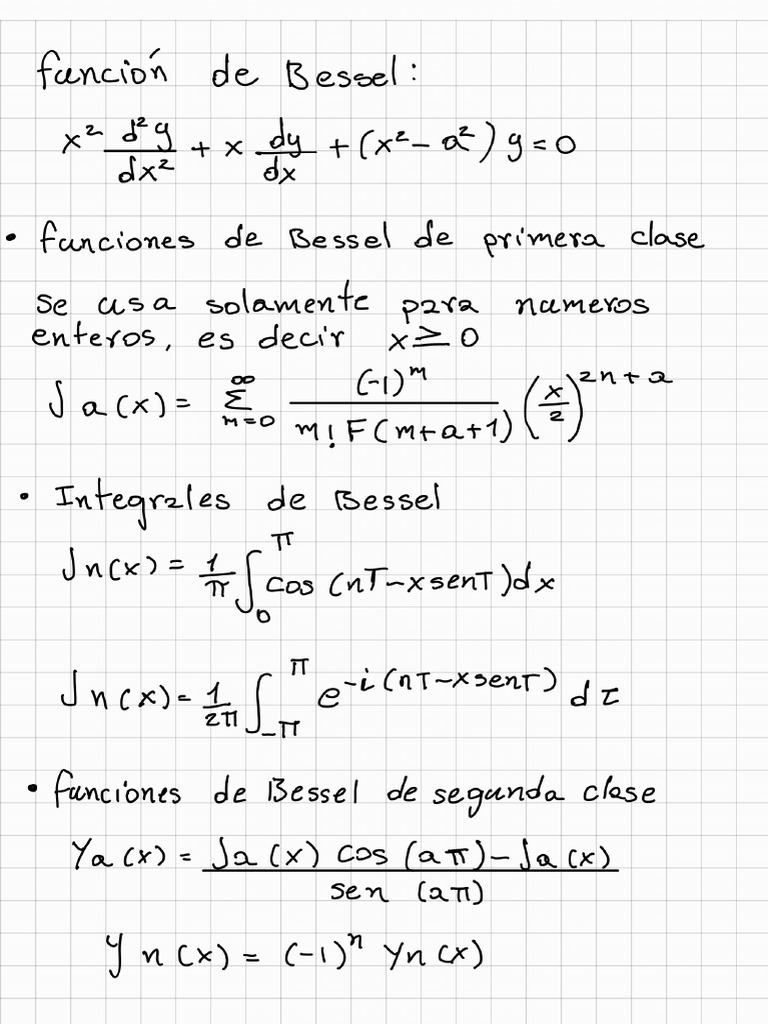 función de Bessel:
x² d²y/dx² + x dy/dx + (x² - a²) y = 0
• funciones de Bessel de primera clase
se usa solamente para numeros
enteros, es decir x ≥ 0
Ja(x) = Σ_{m=0}^{∞} (-1)^m / m! F(m+a+1) (x/2)^{2n+a}
• Integrales de Bessel
Jn(x) = 1/π ∫_0^π cos (nT - x senT) dx
Jn(x) = 1/2π ∫_{-π}^{π} e^{-i(nT - x senT)} dτ
• funciones de Bessel de segunda clase
Ya(x) = Ja(x) cos(aπ) - Ja(x) / sen (aπ)
Yn(x) = (-1)^n Yn(x)